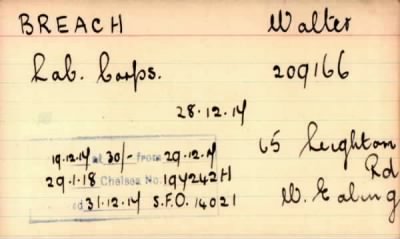 BREACH Walter
Lab. Corps. 209166
28.12.17
19.12.17 at 30/- from 29.12.17 65 Leighton
29.1.18 Chelsea No. 194242H Rd
d 31.12.17 S.F.O. 14021 W. Ealing